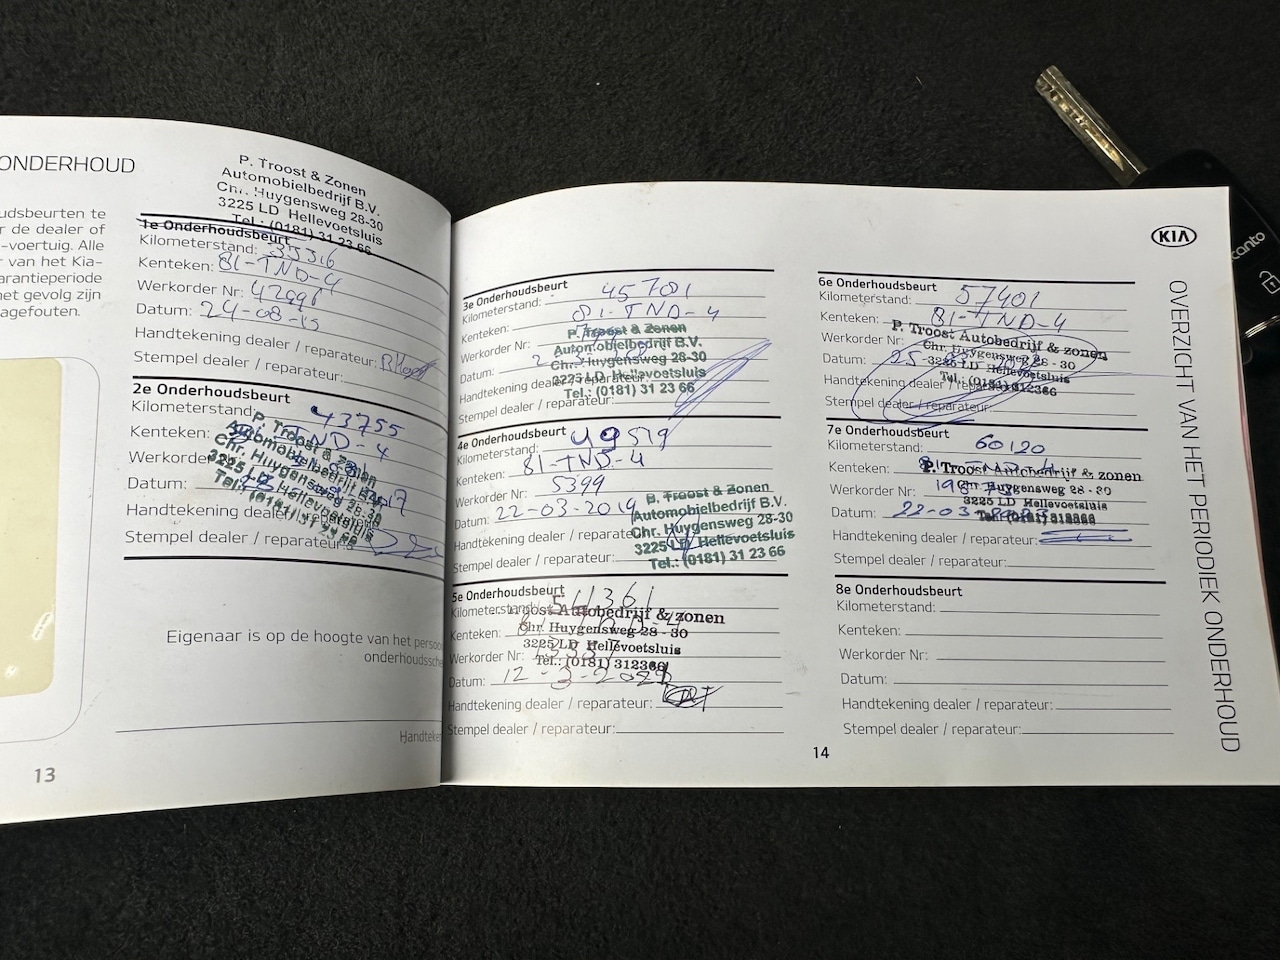 ONDERHOUD
udsbeurten te
r de dealer of
-voertuig. Alle
van het Kia-
arantieperiode
net gevolg zijn
agefouten.
P. Troost & Zonen
Automobielbedrijf B.V.
Chr. Huygensweg 28-30
3225 LD Hellevoetsluis
Tel.: (0181) 31 23 66
1e Onderhoudsbeurt
Kilometerstand: 35316
Kenteken: 81-TND-4
Werkorder Nr: 42996
Datum: 24-08-15
Handtekening dealer / reparateur:
Stempel dealer / reparateur:
2e Onderhoudsbeurt
Kilometerstand: 43755
Kenteken: TND-4
Werkorder
Datum: 17
Handtekening dealer / reparateur:
Stempel dealer / reparateur:
P. Troost & Zonen
Automobielbedrijf B.V.
Chr. Huygensweg 28-30
3225 LD Hellevoetsluis
Tel.: (0181) 31 23 66
Eigenaar is op de hoogte van het persoo
onderhoudssche
Handteken
13
3e Onderhoudsbeurt
Kilometerstand: 45701
Kenteken: 81-TND-4
Werkorder Nr:
Datum:
Handtekening dealer / reparateur:
Stempel dealer / reparateur:
P. Troost & Zonen
Automobielbedrijf B.V.
Chr. Huygensweg 28-30
3225 LD Hellevoetsluis
Tel.: (0181) 31 23 66
4e Onderhoudsbeurt
Kilometerstand: 49519
Kenteken: 81-TND-4
Werkorder Nr: 5399
Datum: 22-03-2019
Handtekening dealer / reparateur:
Stempel dealer / reparateur:
P. Troost & Zonen
Automobielbedrijf B.V.
Chr. Huygensweg 28-30
3225 LD Hellevoetsluis
Tel.: (0181) 31 23 66
5e Onderhoudsbeurt
Kilometerstand: 511361
Kenteken:
Werkorder Nr:
Datum: 12-3-202
Handtekening dealer / reparateur:
Stempel dealer / reparateur:
Troost Autobedrijf & zonen
Chr. Huygensweg 28 - 30
3225 LD Hellevoetsluis
Tel.: (0181) 312366
14
KIA
6e Onderhoudsbeurt
Kilometerstand: 57401
Kenteken: 81-TND-4
Werkorder Nr:
Datum: 25
Handtekening dealer / reparateur:
Stempel dealer / reparateur:
P. Troost Autobedrijf & zonen
Chr. Huygensweg 28 - 30
3225 LD Hellevoetsluis
Tel.: (0181) 312366
7e Onderhoudsbeurt
Kilometerstand: 60120
Kenteken:
Werkorder Nr:
Datum: 22-03
Handtekening dealer / reparateur:
Stempel dealer / reparateur:
P. Troost Autobedrijf & zonen
Chr. Huygensweg 28 - 30
3225 LD Hellevoetsluis
Tel.: (0181) 312366
8e Onderhoudsbeurt
Kilometerstand:
Kenteken:
Werkorder Nr:
Datum:
Handtekening dealer / reparateur:
Stempel dealer / reparateur:
OVERZICHT VAN HET PERIODIEK ONDERHOUD
canto